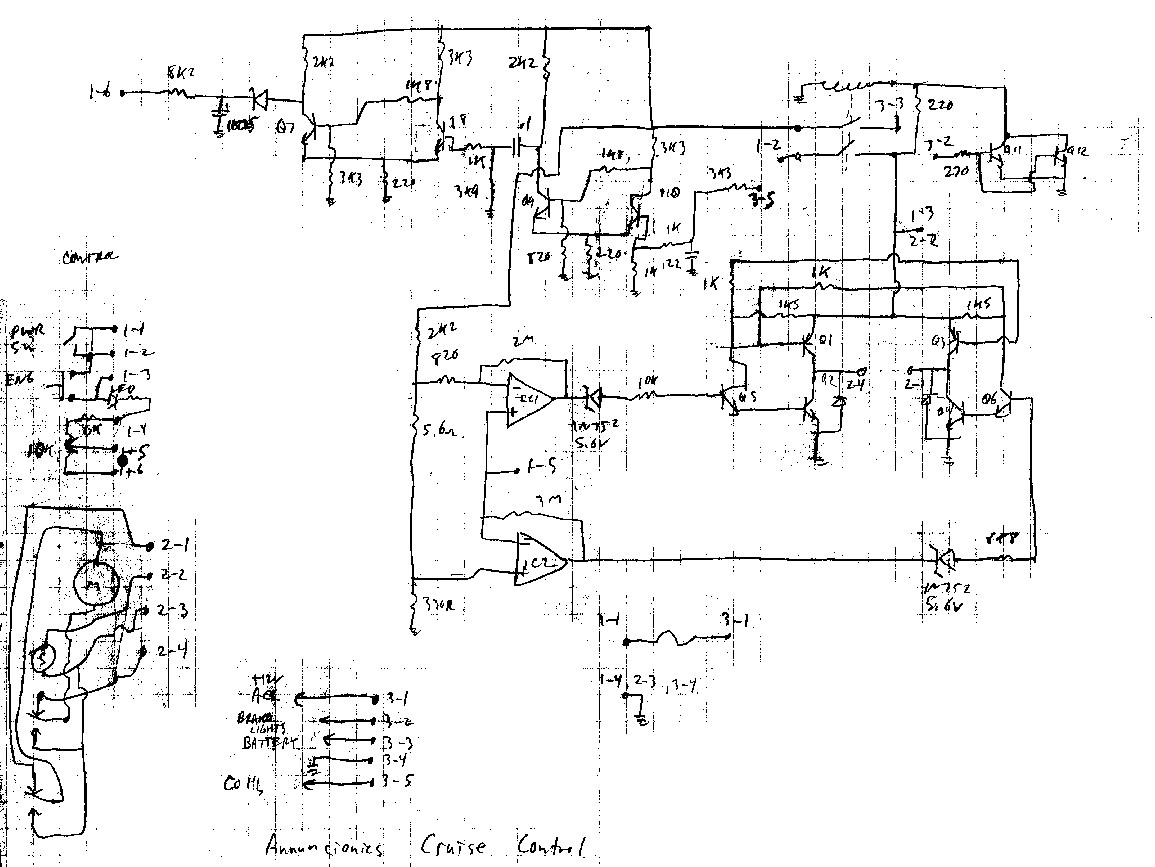 1-6
8K2
2K2
3K3
1K8
2K2
Q7
1K
3K9
3K3
220
Q9
1K8
3K3
820
220
1K
1K
22
3K3
3-5
3-3
220
1-2
3-2
220
Q11
Q12
1-3
2-2
1K
1K
1K5
1K5
Q1
Q3
Q2
2-4
Q5
Q6
CONTROL
PWR
SW
ENG
1-1
1-2
1-3
LED
1-4
10K
1-5
1-6
2K2
820
2M
IC1
1N752
5.6V
10K
1-5
3M
IC2
330R
1N752
5.6V
M
2-1
2-2
2-3
2-4
3-1
1-4, 2-3, 3-4
+12V
ACC
3-1
BRAKE
LIGHTS
3-2
BATTERY
3-3
3-4
COIL
3-5
Annuncionics Cruise Control